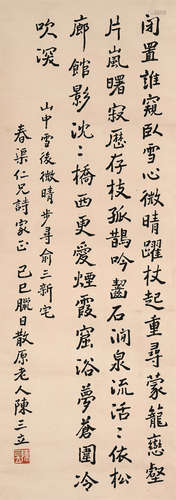 閉置誰窺臥雪心微晴躍杖起重尋蒙籠戀壑
片嵐曙寂歷存枝孤鵲吟齧石澗泉流活活依松
廊館影沈沈橋西更愛煙霞窟浴夢蒼圍冷
吹深
山中雪後微晴步尋俞三新宅
春渠仁兄詩家正 己巳臘日散原老人陳三立